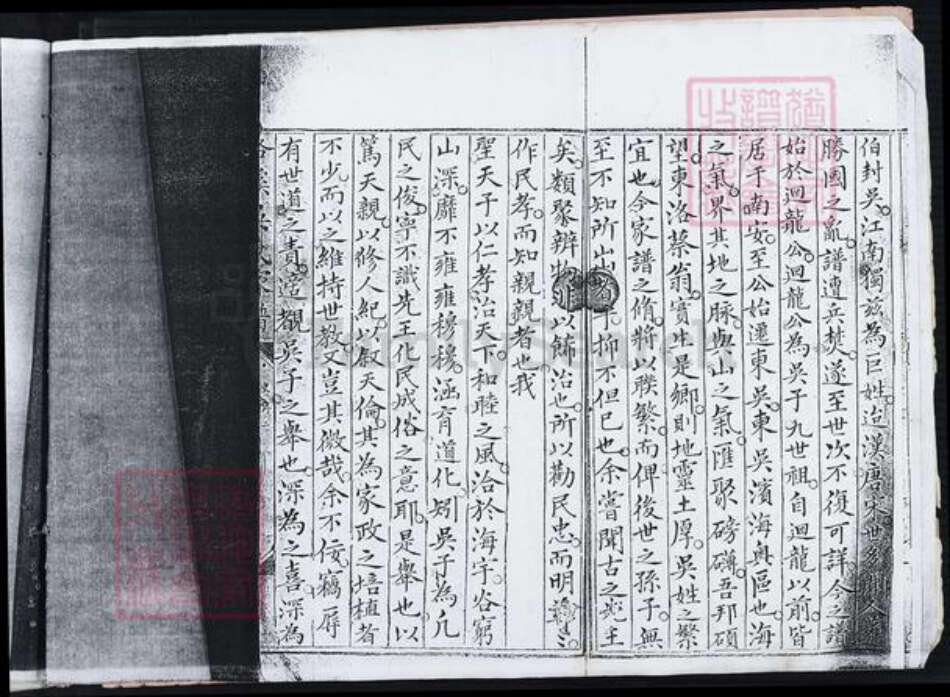 伯封吳。江南獨茲為巨姓。迨漢唐宋世多
勝國之亂。譜遭兵焚。遂至世次不復可詳。今之譜
始於迴龍公。迴龍公為吳子九世祖。自迴龍以前。皆
居于南安。至公始遷東吳。東吳濱海輿區也。海
之氣。界其地之脉。與山之氣。匯聚磅礴。吾邦碩
望。東洛蔡翁。實生是鄉。則地靈土厚。吳姓之繁
宜也。余家譜之脩。將以聮繁。而俾後世之孫子。無
至不知所出。抑不但已也。余嘗聞古之先王
矣。類聚辨物。以飾治也。所以勸民忠。而明
作民孝。而知親親者也我
聖天子以仁孝治天下。和睦之風。洽於海宇。谷窮
山深。靡不雍雍穆穆。涵育道化。矧吳子為凢
民之俊。寧不識先王化民成俗之意耶。是舉也。以
篤天親。以修人紀。以叙天倫。其為家政之培植者
不少。而以之維持世教。又豈其微哉。余不佞。竊辱
有世道之責。適覩吳子之舉也。深為之喜。深為